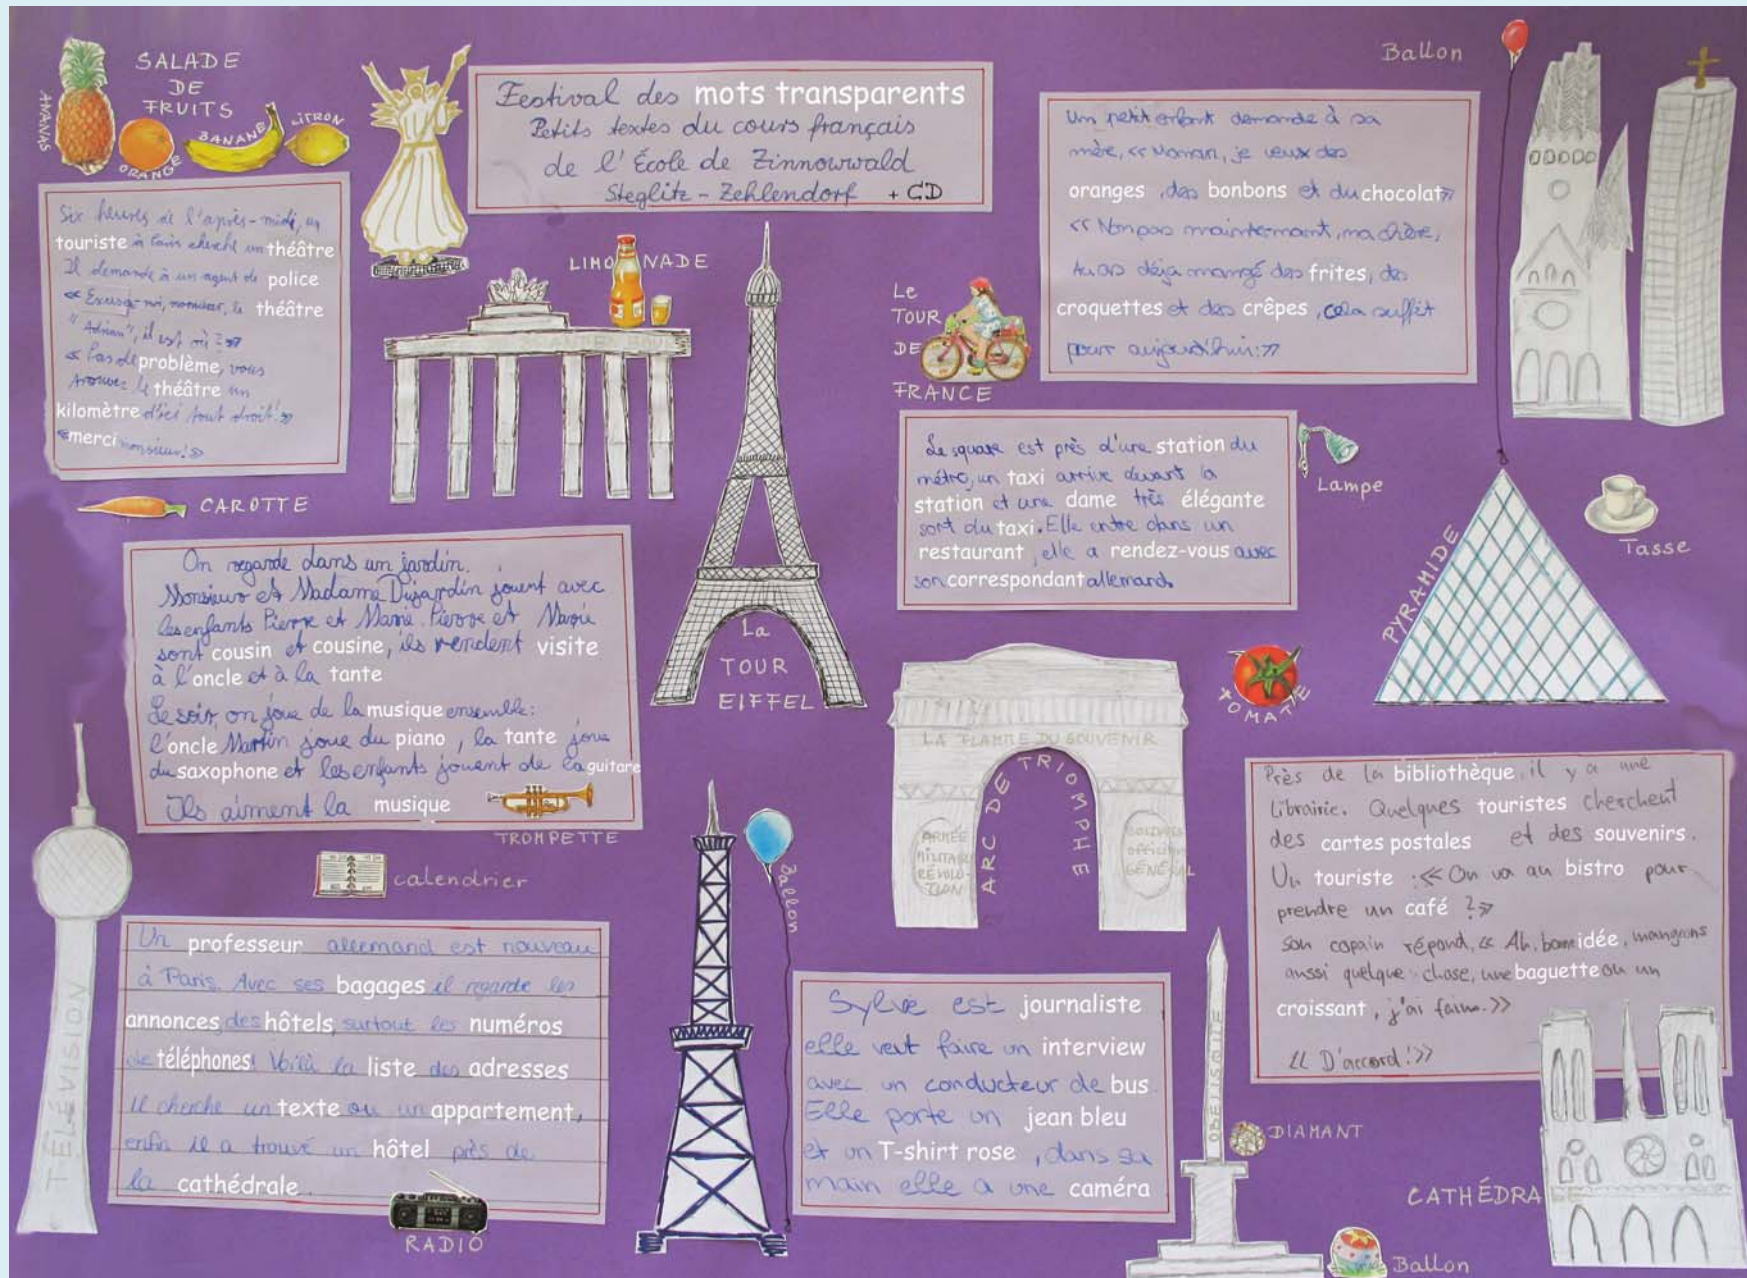 SALADE
DE
FRUITS
ANANAS
ORANGE
BANANE
CITRON
Festival des mots transparents
Petits textes du cours français
de l'École de Zinnowwald
Steglitz - Zehlendorf + CD
Ballon
Six heures de l'après-midi, un
touriste à Paris cherche un théâtre
Il demande à un agent de police
« Excusez-moi, monsieur, le théâtre
"Adrian", il est où ? »
« Pas de problème, vous
trouvez le théâtre un
kilomètre d'ici tout droit! »
« merci monsieur! »
LIMONADE
Un petit enfant demande à sa
mère, « Maman, je veux des
oranges, des bonbons et du chocolat »
« Non pas maintenant, ma chère,
tu as déja mangé des frites, des
croquettes et des crêpes, cela suffit
pour aujourd'hui. »
Le
TOUR
DE
FRANCE
Le square est près d'une station du
métro, un taxi arrive devant la
station et une dame très élégante
sort du taxi. Elle entre dans un
restaurant, elle a rendez-vous avec
son correspondant allemand.
Lampe
Tasse
PYRAMIDE
CAROTTE
On regarde dans un jardin.
Monsieur et Madame Dujardin jouent avec
les enfants Pierre et Marie. Pierre et Marie
sont cousin et cousine, ils rendent visite
à l'oncle et à la tante
Le soir, on joue de la musique ensemble:
l'oncle Martin joue du piano, la tante joue
du saxophone et les enfants jouent de la guitare
Ils aiment la musique
TROMPETTE
La
TOUR
EIFFEL
TOMATE
LA FLAMME DU SOUVENIR
ARC DE TRIOMPHE
ARMÉE
MILITAIRE
RÉVOLU-
TION
GÉNÉRAL
calendrier
Ballon
Près de la bibliothèque, il y a une
Librairie. Quelques touristes cherchent
des cartes postales et des souvenirs.
Un touriste : « On va au bistro pour
prendre un café ? »
Son copain répond, « Ah, bonne idée, mangeons
aussi quelque chose, une baguette ou un
croissant, j'ai faim. »
« D'accord! »
TÉLÉVISION
Un professeur allemand est nouveau
à Paris. Avec ses bagages il regarde les
annonces des hôtels, surtout les numéros
de téléphones! Voilà la liste des adresses
il cherche un texte ou un appartement,
enfin il a trouvé un hôtel près de
la cathédrale.
RADIO
Sylvie est journaliste
elle veut faire un interview
avec un conducteur de bus.
Elle porte un jean bleu
et un T-shirt rose, dans sa
main elle a une caméra
OBÉLISQUE
DIAMANT
CATHÉDRA
Ballon